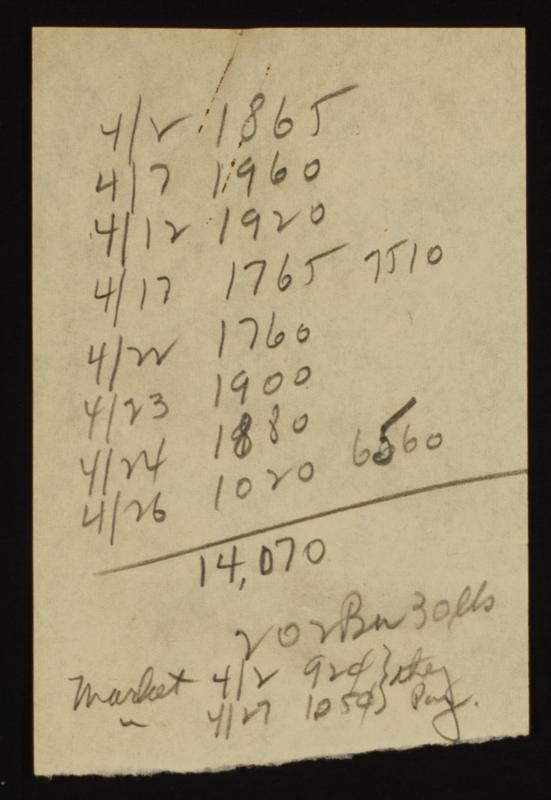 4/2 1865
4/7 1960
4/12 1920
4/17 1765 7510
4/22 1760
4/23 1900
4/24 1880
4/26 1020 6560
14,070
202 Bu 30 lbs
Market 4/2 92¢ } they
" 4/27 105¢ } Pay.